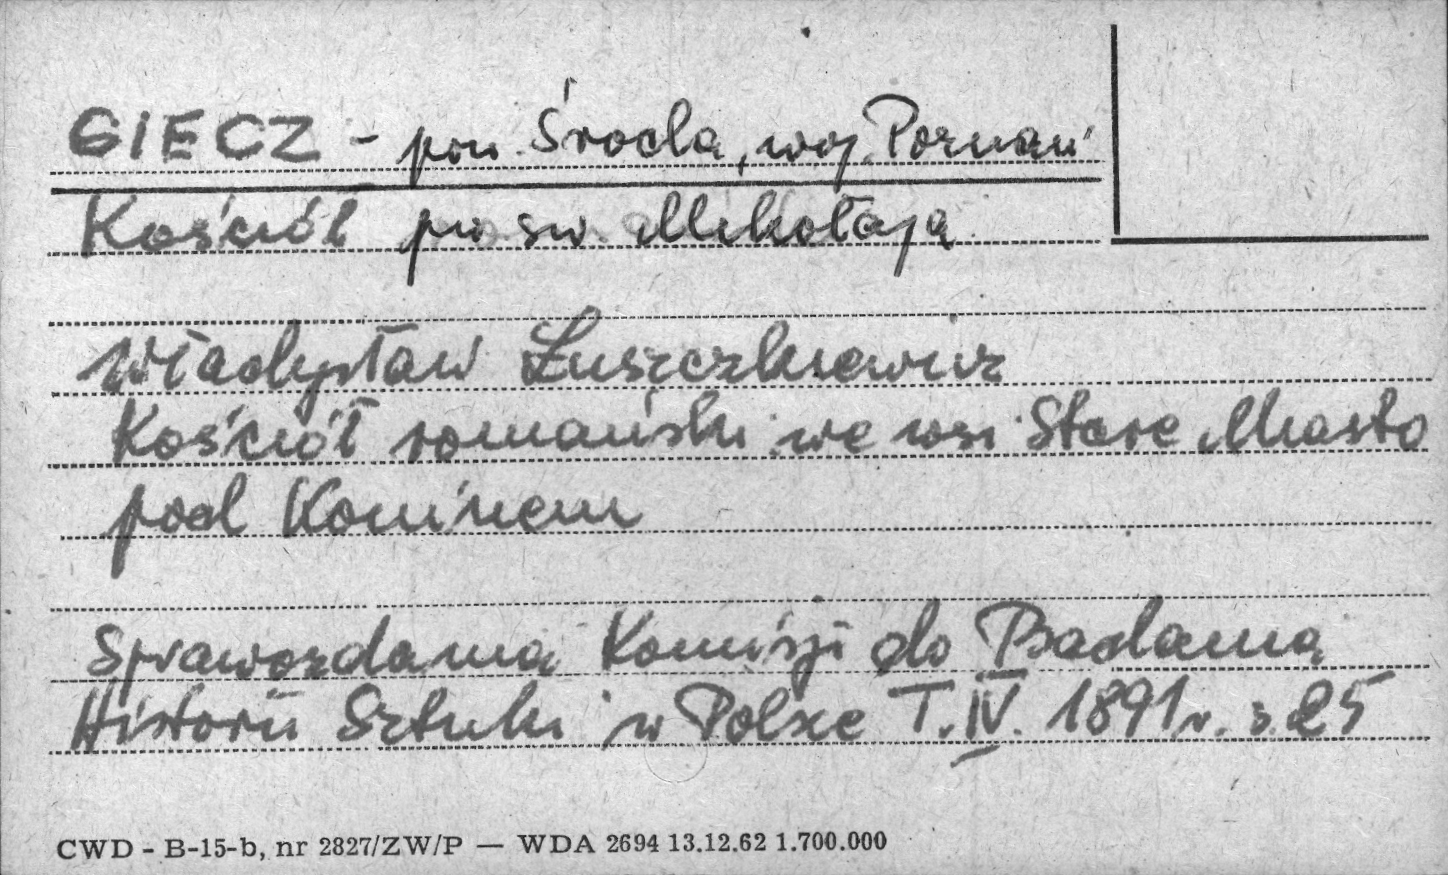 GIECZ - pow. Środa, woj. Poznań
Kościół pw św. Mikołaja
Władysław Łuszczkiewicz
Kościół romański we wsi Stare Miasto
pod Koninem
Sprawozdania Komisji do Badania
Historii Sztuki w Polsce T. IV. 1891 r. s. 25
CWD - B-15-b, nr 2827/ZW/P — WDA 2694 13.12.62 1.700.000